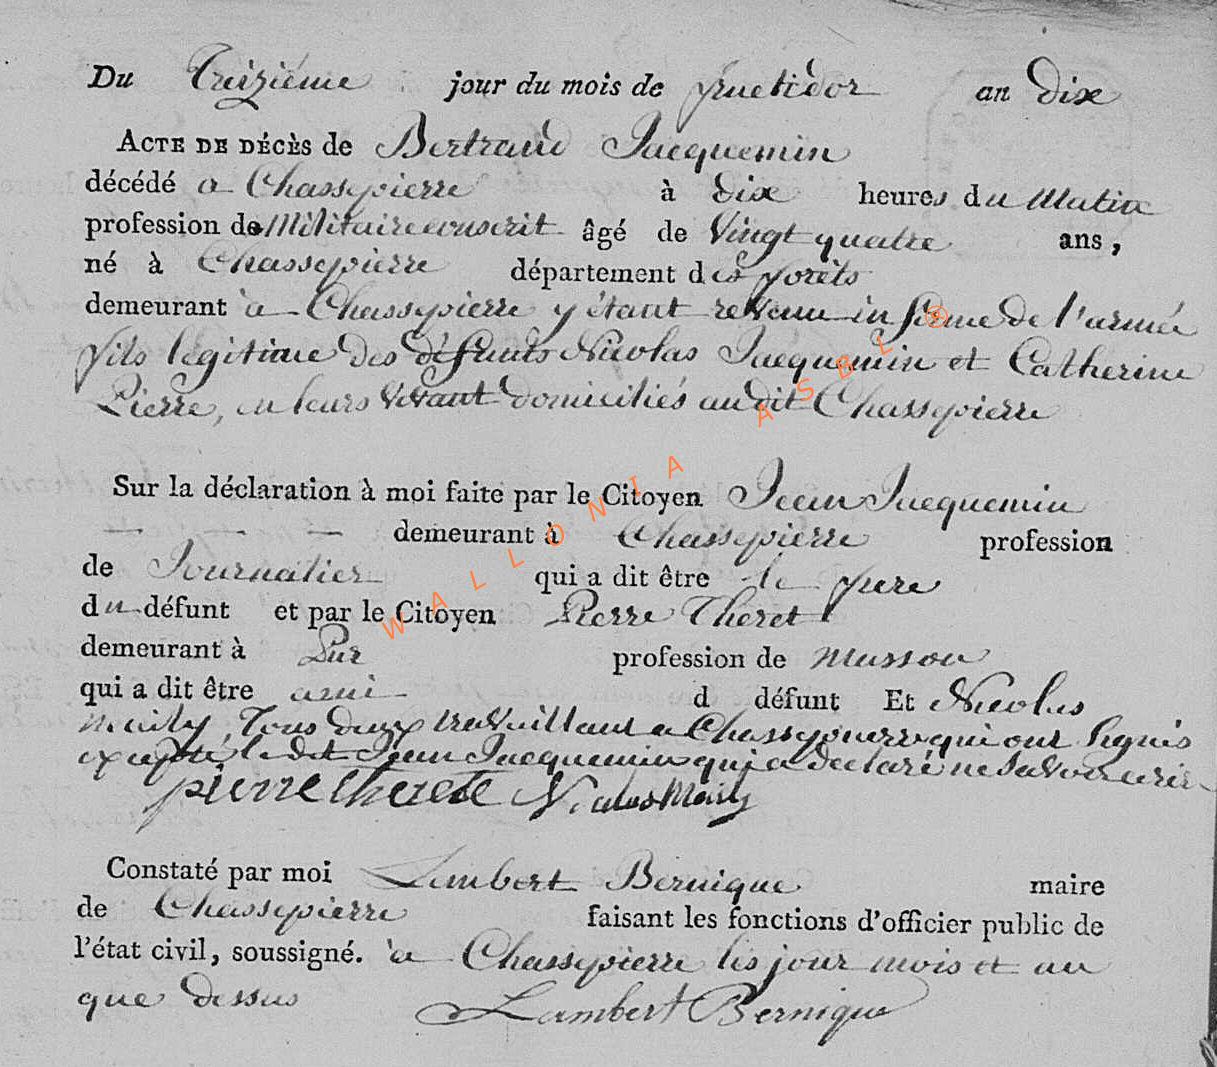 Du Treiziéme jour du mois de fructidor an dix
ACTE DE DÉCÈS de Bertrand Jacquemin
décédé a Chassepierre à dix heures du Matin
profession de Militaire conscrit âgé de Vingt quatre ans,
né à Chassepierre département des forêts
demeurant à Chassepierre y étant revenu infirme de l'armée
fils légitime des défunts Nicolas Jacquemin et Catherine
Pierre, en leurs vivant domiciliés audit Chassepierre
Sur la déclaration à moi faite par le Citoyen Jean Jacquemin
demeurant à Chassepierre profession
de Journalier qui a dit être le frere
du défunt et par le Citoyen Pierre Theret
demeurant à Pur profession de Masson
qui a dit être ami d défunt Et Nicolas
Maily, Tous deux travaillant a Chassepierre qui ont Signés
excepté le dit Jean Jacquemin qui a declaré ne Savoir ecrire
pierre therete Nicolas Maily
Constaté par moi Lambert Bernique maire
de Chassepierre faisant les fonctions d'officier public de
l'état civil, soussigné. à Chassepierre les jour mois et an
que dessus Lambert Bernique
WALLONIA ASBL ®